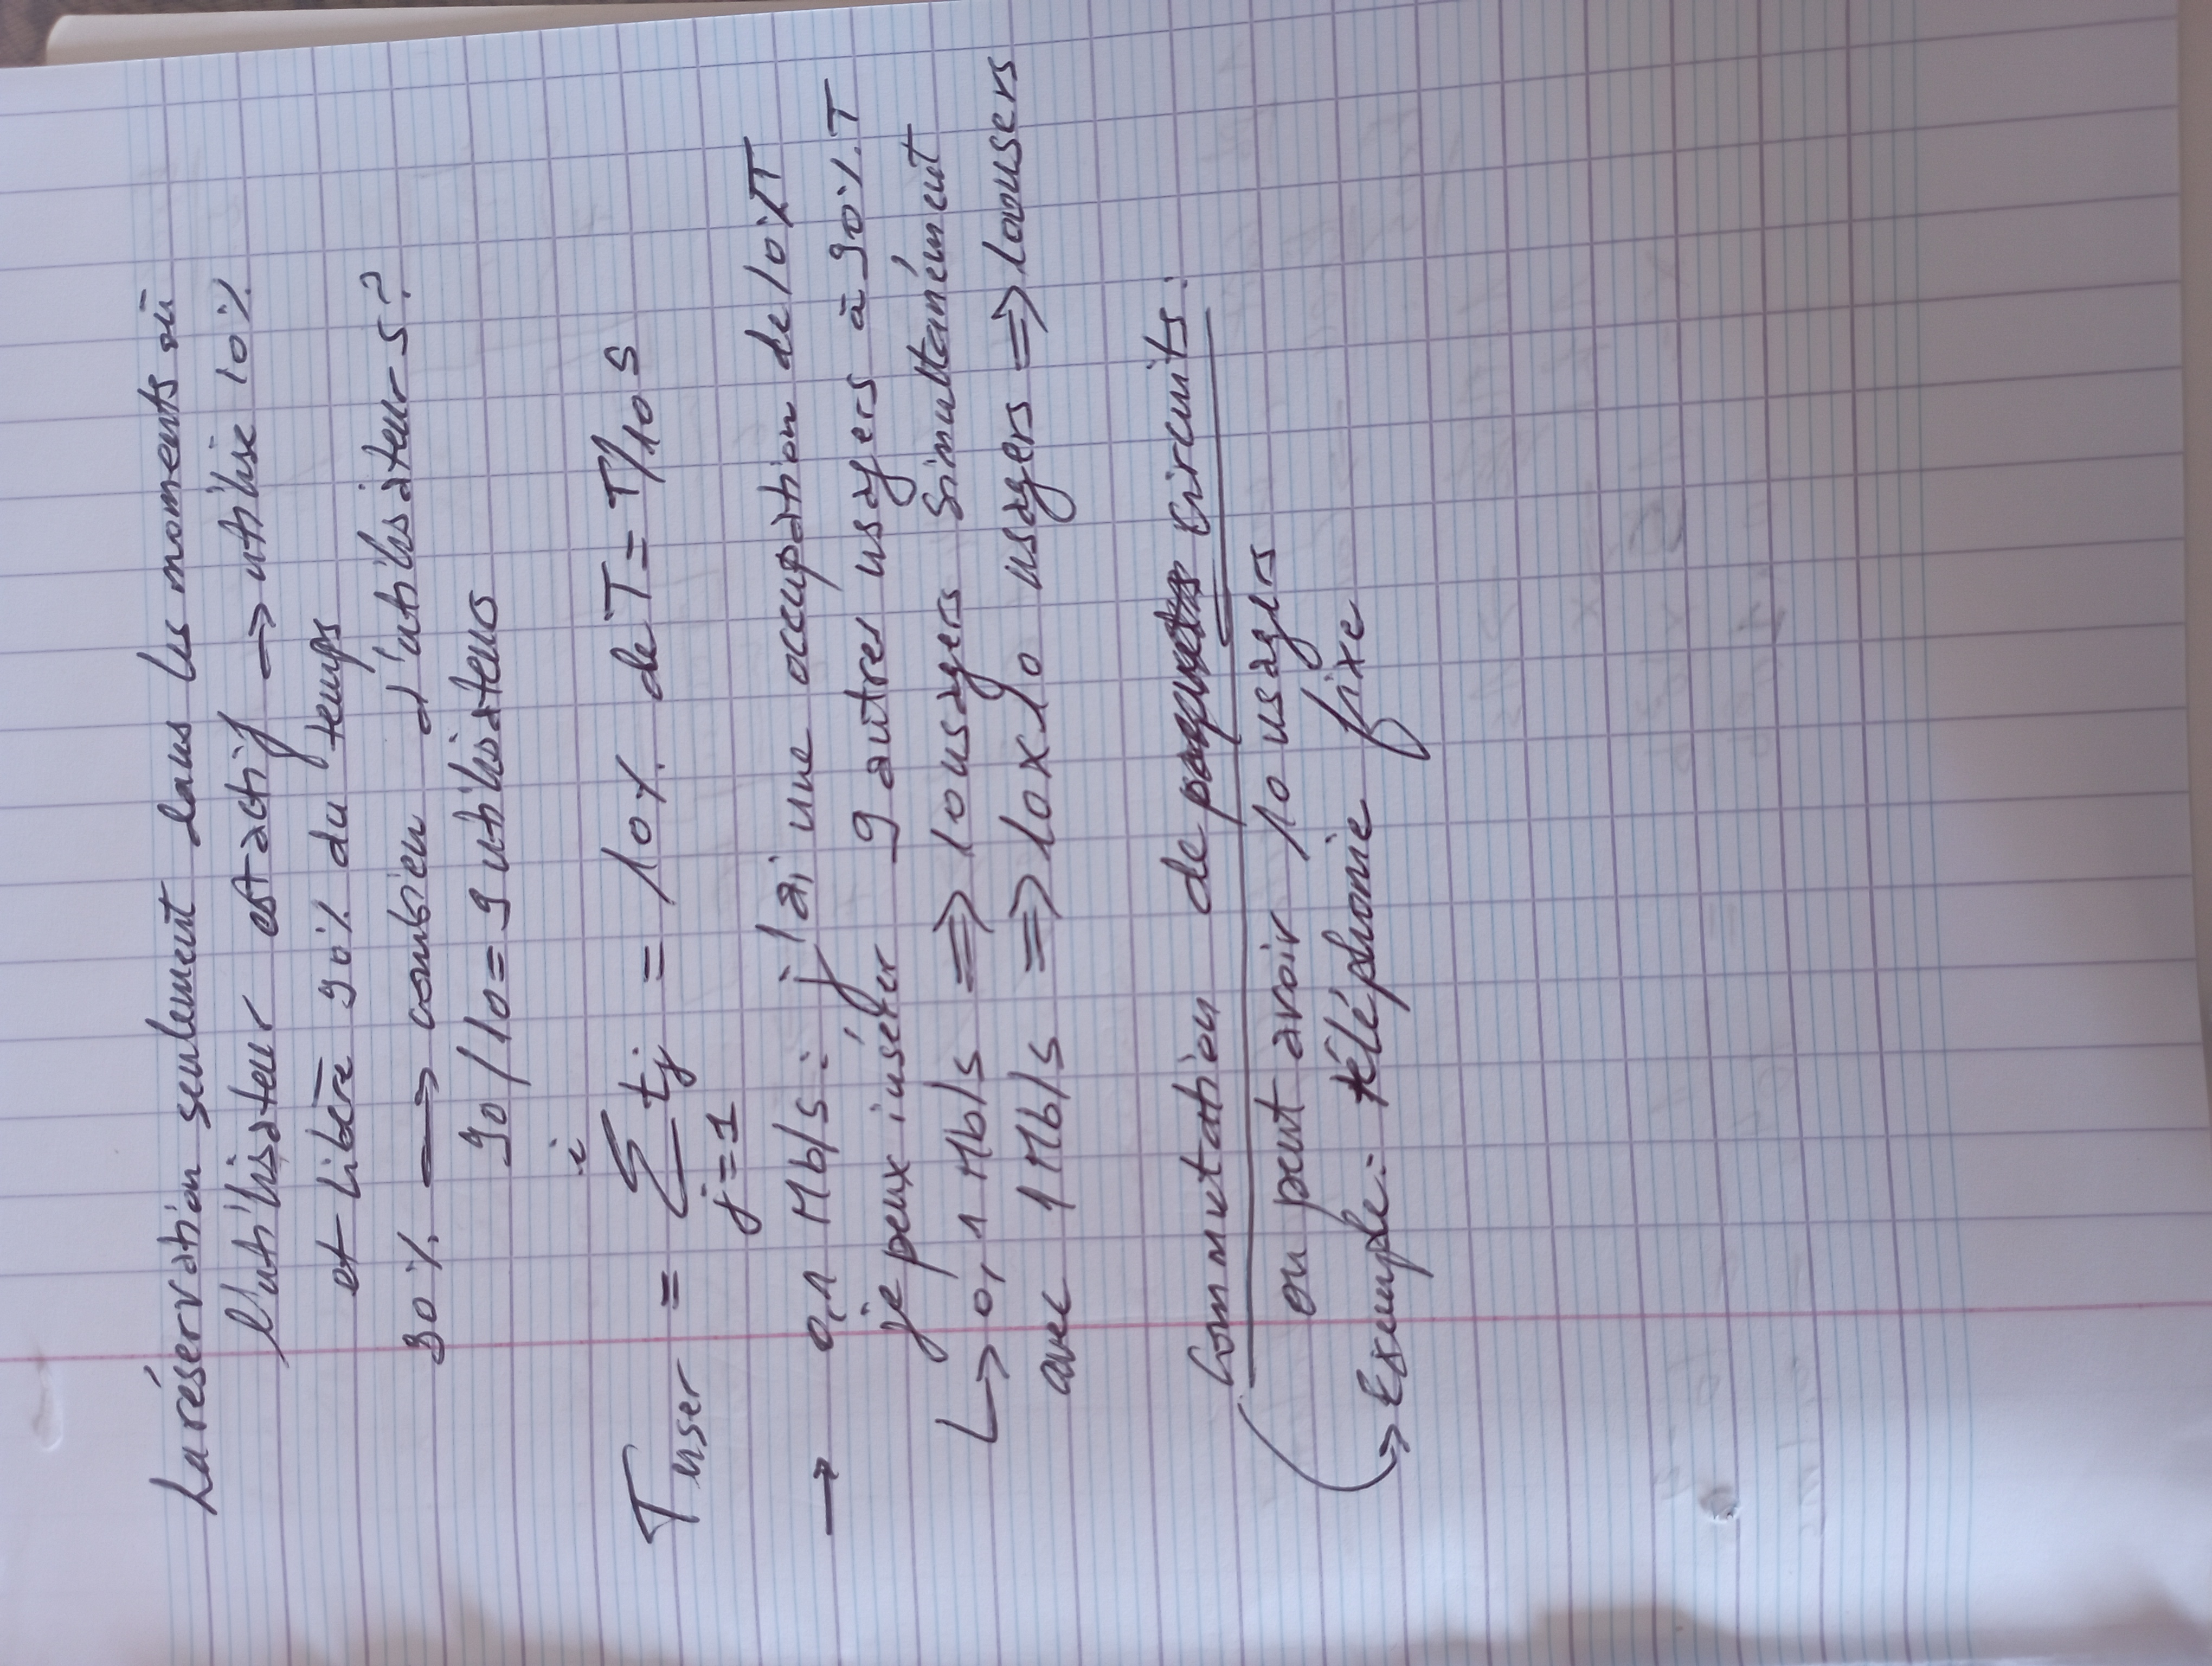 La réservation seulement dans les moments où
l'utilisateur est actif → utilise 10%
et libère 90% du temps
90% → combien d'utilisateur-s?
90/10 = 9 utilisateurs
i
T user = Σ tj = 10% de T = T/10 s
j=1
→ 0,1 Mb/s : j'ai une occupation de 10%T
je peux insérer 9 autres usagers à 90%.T
↳ 0,1 Mb/s ⇒ 10 usagers simultanément
avec 1 Mb/s ⇒ 10x10 usagers ⇒ 100users
Commutation de paquets circuits :
on peut avoir 10 usagers
→ Exemple : téléphonie fixe